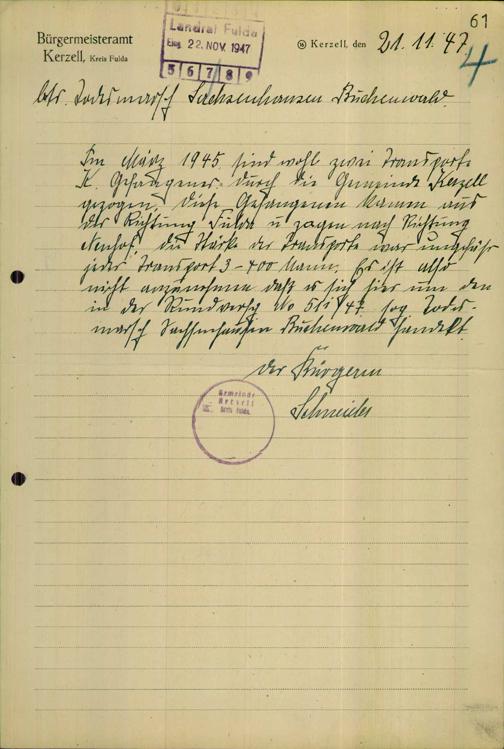 61
Landrat Fulda
Eing. 22. NOV. 1947
5 6 7 8 9
Bürgermeisteramt
Kerzell, Kreis Fulda
⑯ Kerzell, den 21.11.47.
4
btr. Todesmarsch Sachsenhausen Buchenwald.
Im März 1945 sind wohl zwei Transporte
K. Gefangener durch die Gemeinde Kerzell
gezogen, diese Gefangenen kamen aus
der Richtung Fulda u zogen nach Richtung
die Stärke der Transporte war ungefähr
jeder Transport 3-400 Mann. Es ist also
nicht anzunehmen daß es sich hier um den
in der Rundverfg No 51/47 sog Todes-
marsch Sachsenhausen Buchenwald handelt.
der Bürgerm
Gemeinde
Kerzell
Kreis Fulda